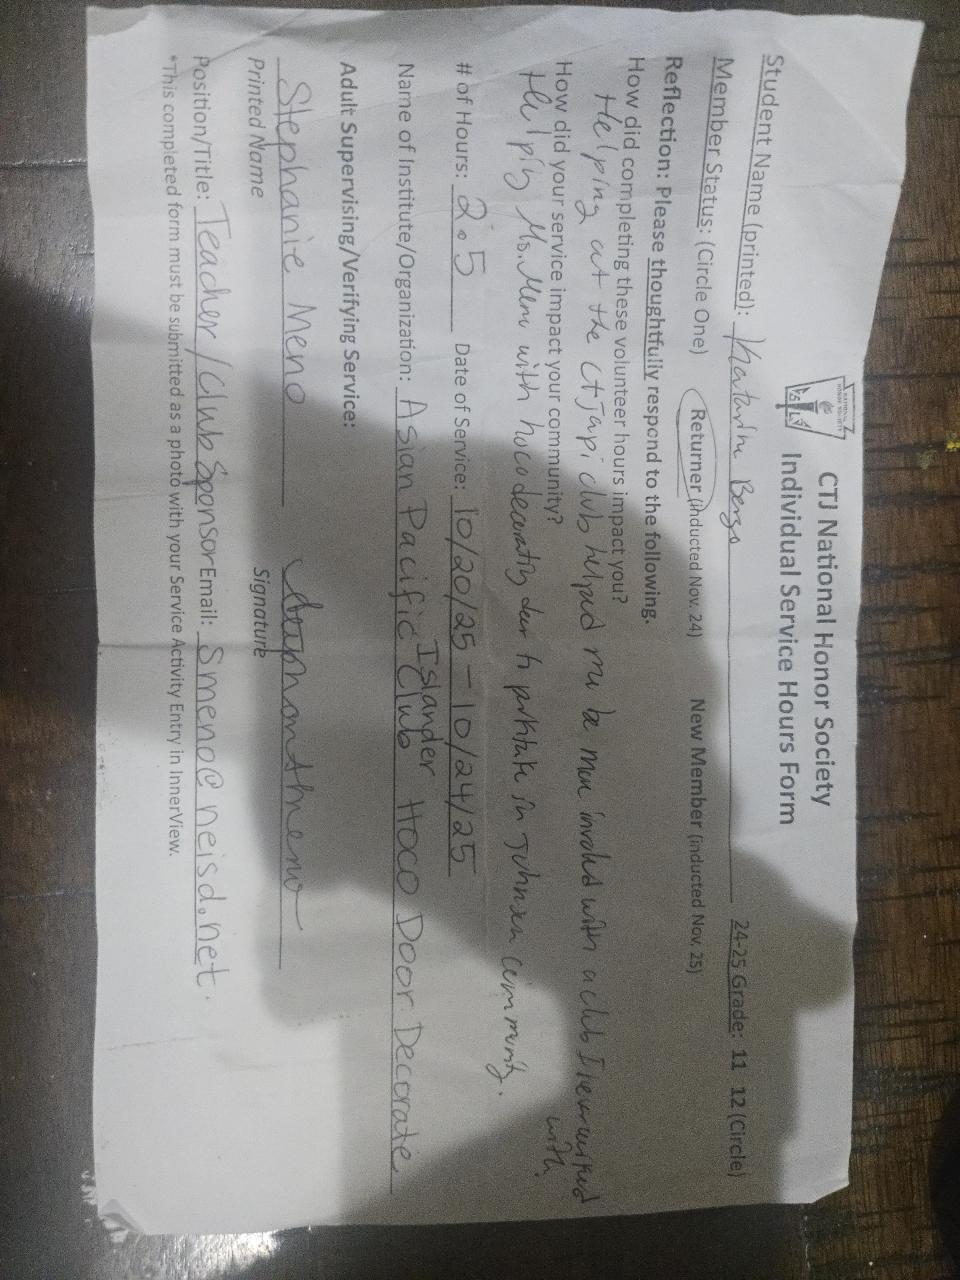 CTJ National Honor Society
Individual Service Hours Form
Student Name (printed): 24-25 Grade: 11 12 (Circle)
Member Status: (Circle One) Returner (inducted Nov. 24) New Member (inducted Nov. 25)
Reflection: Please thoughtfully respond to the following.
How did completing these volunteer hours impact you?
Helping out the ctj api club helped me be more involved with a club I
with.
How did your service impact your community?
Ms. Meno with hoco decorating door in Johnson community.
# of Hours: 2.5 Date of Service: 10/20/25 - 10/24/25
Name of Institute/Organization: Asian Pacific Islander Club Hoco Door Decorate
Adult Supervising/Verifying Service:
Stephanie Meno
Printed Name Signature
Position/Title: Teacher/Club Sponsor Email: smeno@neisd.net.
*This completed form must be submitted as a photo with your Service Activity Entry in InnerView.